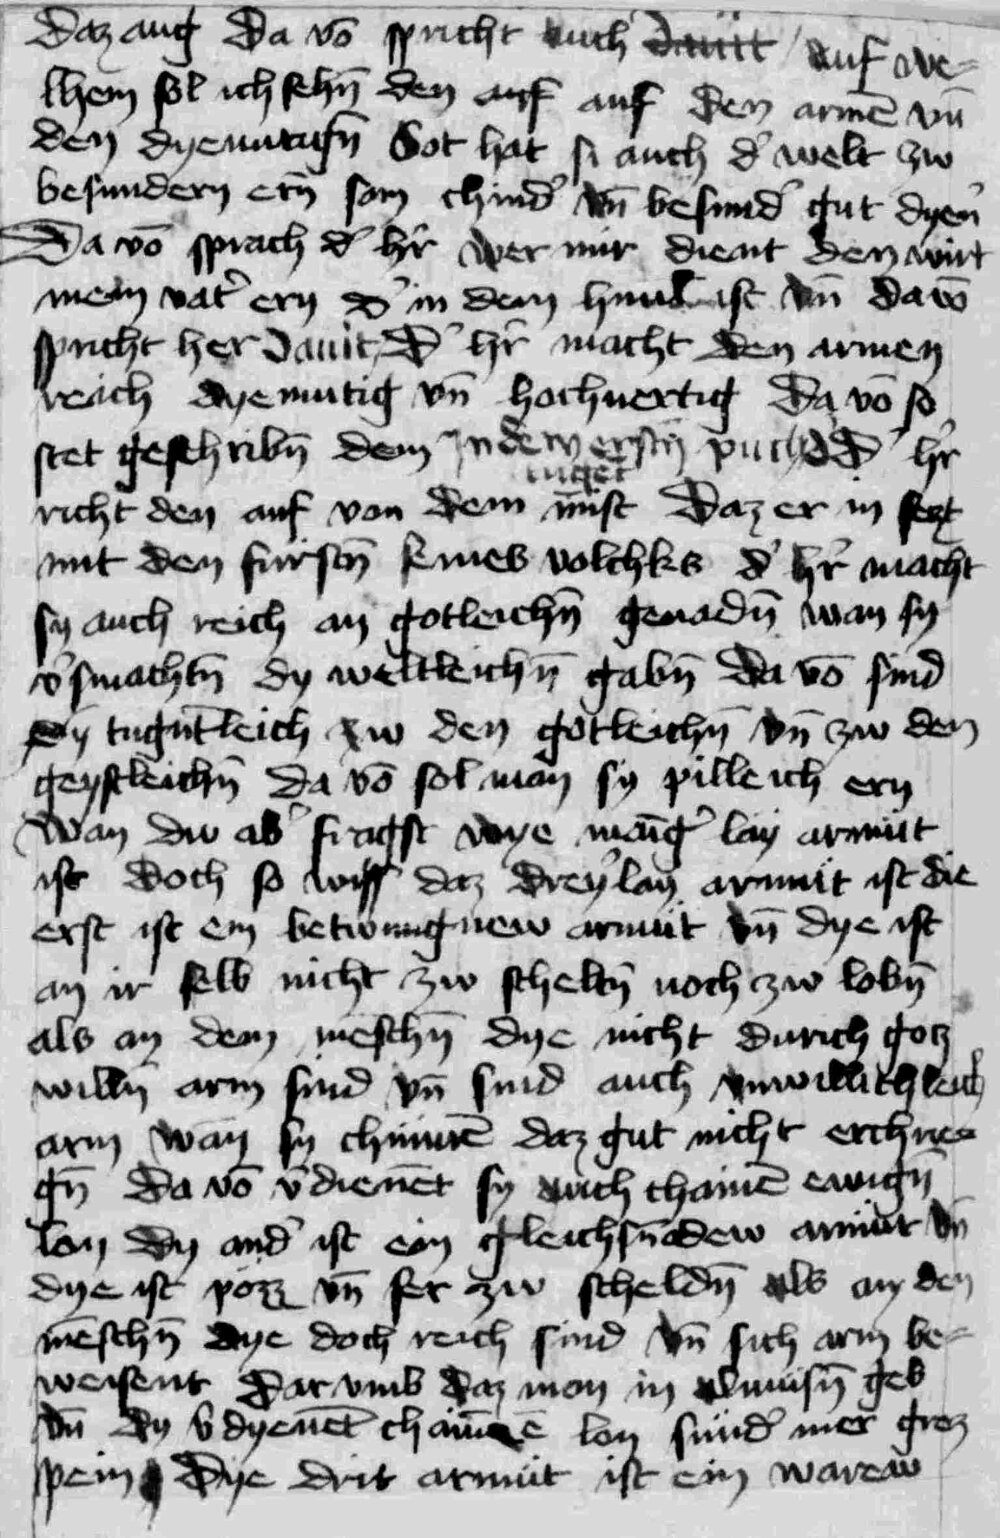 Daz aug Da vō spricht auch Dauit auf we-
lhem sol ich sehn̄ den auf auf den armē vn̄
den dyemutign̄ Got hat si auch d' welt zw
besundern ern̄ som chind' vn̄ besund' gut dyen'
Da vō sprach d' h'r wer mir dient den wirt
mein vat' ern d' in dem himel ist vn̄ da vō
spricht her Dauit D' h'r macht den armen
reich dyemutig vn̄ hochuertig Da vō so
stet geschribn̄ dem In dem erstn̄ puch D' h'r
richt den auf von dem mist Daz er in secz
mit den furstn̄ seines volchks d' h'r macht
sy auch reich an gotleichn̄ genadn̄ wan sy
v'smachtn̄ dy weltleichn̄ gabn̄ Da vō sind
sy tugūtleich zw den gotleichn̄ vn̄ zw den
geystleichn̄ Da vō sol man sy pilleich ern
Wan du ab' fragst wye māig' lay armut
ist Doch so wiss daz drey'lay armut ist die
erst ist ein betwungnew armut vn̄ dye ist
an ir selb nicht zw scheltn̄ noch zw lobn̄
als an dem mēschn̄ dye nicht durich gotz
willn̄ arm sind vn̄ sind auch vnwillichleich
arm wan sy chunnē daz gut nicht erchrie-
gn̄ Da vō v'dienēt sy auch chainē ewign̄
lon Dy and' ist ein gleichsn̄dew armut vn̄
dye ist pözz vn̄ ser zw scheldn̄ als an den
mēschn̄ dye doch reich sind vn̄ sich arm be-
weisent Dar vmb daz man in almusn̄ geb
vn̄ dy v'dyenēt chainē lon sund' mer groz
pein Dye drit armut ist ein warew